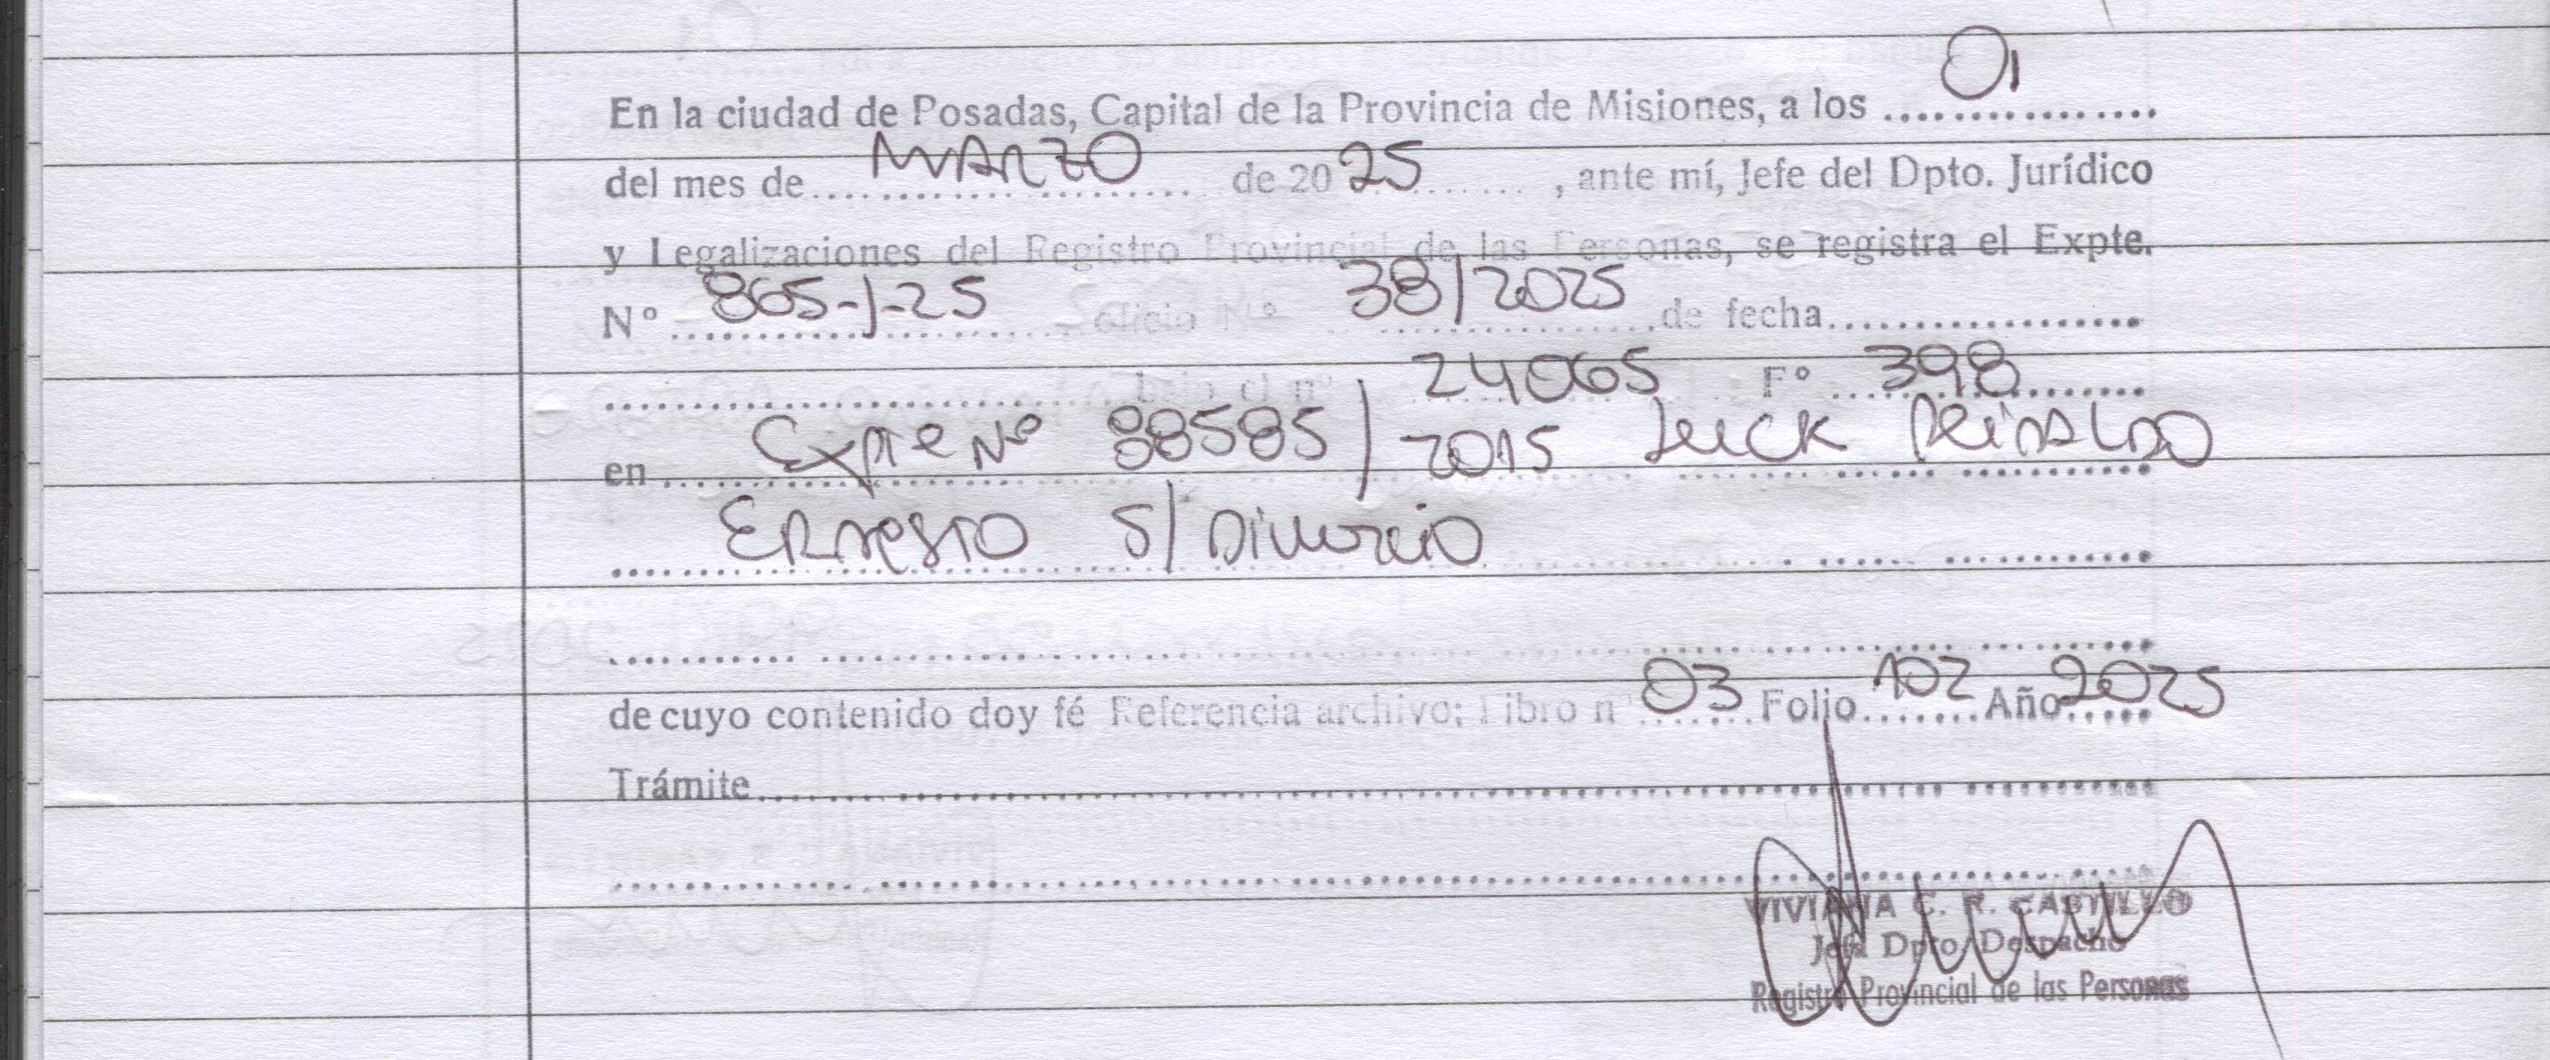 En la ciudad de Posadas, Capital de la Provincia de Misiones, a los 01
del mes de MARZO de 2025, ante mí, Jefe del Dpto. Jurídico
y Legalizaciones del Registro Provincial de las Personas, se registra el Expte.
N° 865-J-25 oficio N° 38/2025 de fecha
bajo el n° 24065 F° 398
en Expte Nº 88585/2015 Luck Reinaldo
Ernesto S/ Divorcio
de cuyo contenido doy fé Referencia archivo: Libro n° 03 Folio 102 Año 2025
Trámite
VIVIANA C. R. CASTILLO
Jefa Dpto. Despacho
Registro Provincial de las Personas